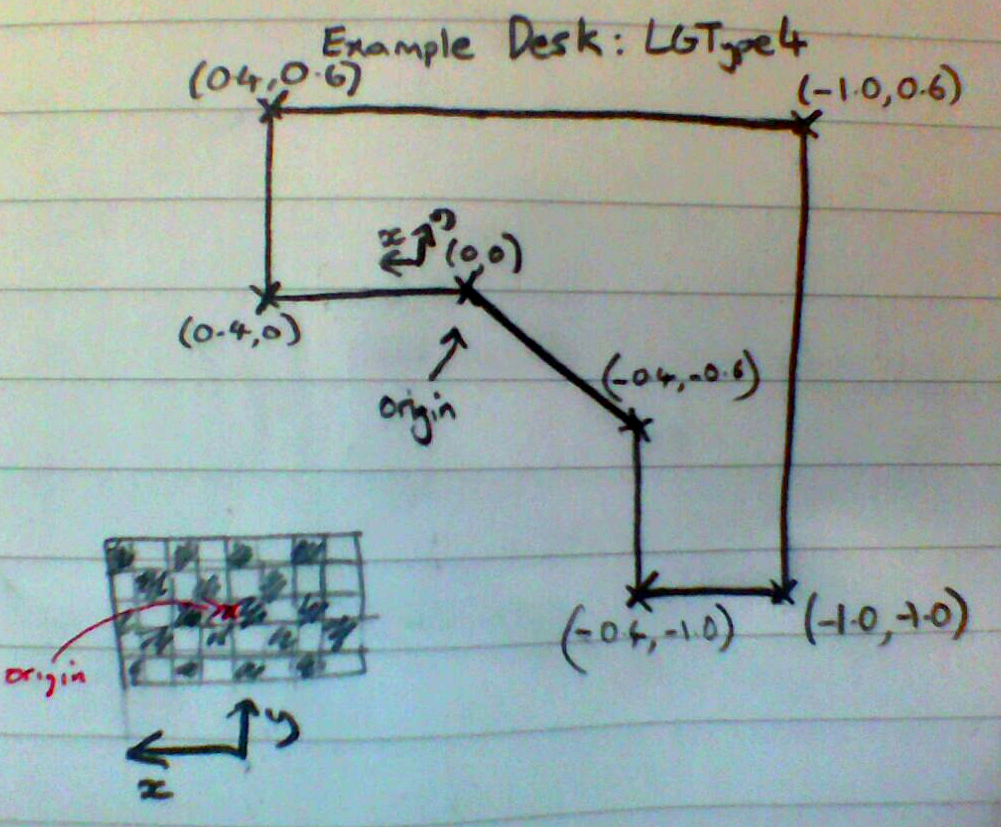 Example Desk: LGType4
(0.4,0.6)
(-1.0,0.6)
x y
(0,0)
(0.4,0)
origin
(-0.4,-0.6)
(-0.4,-1.0)
(-1.0,-1.0)
origin
y
x